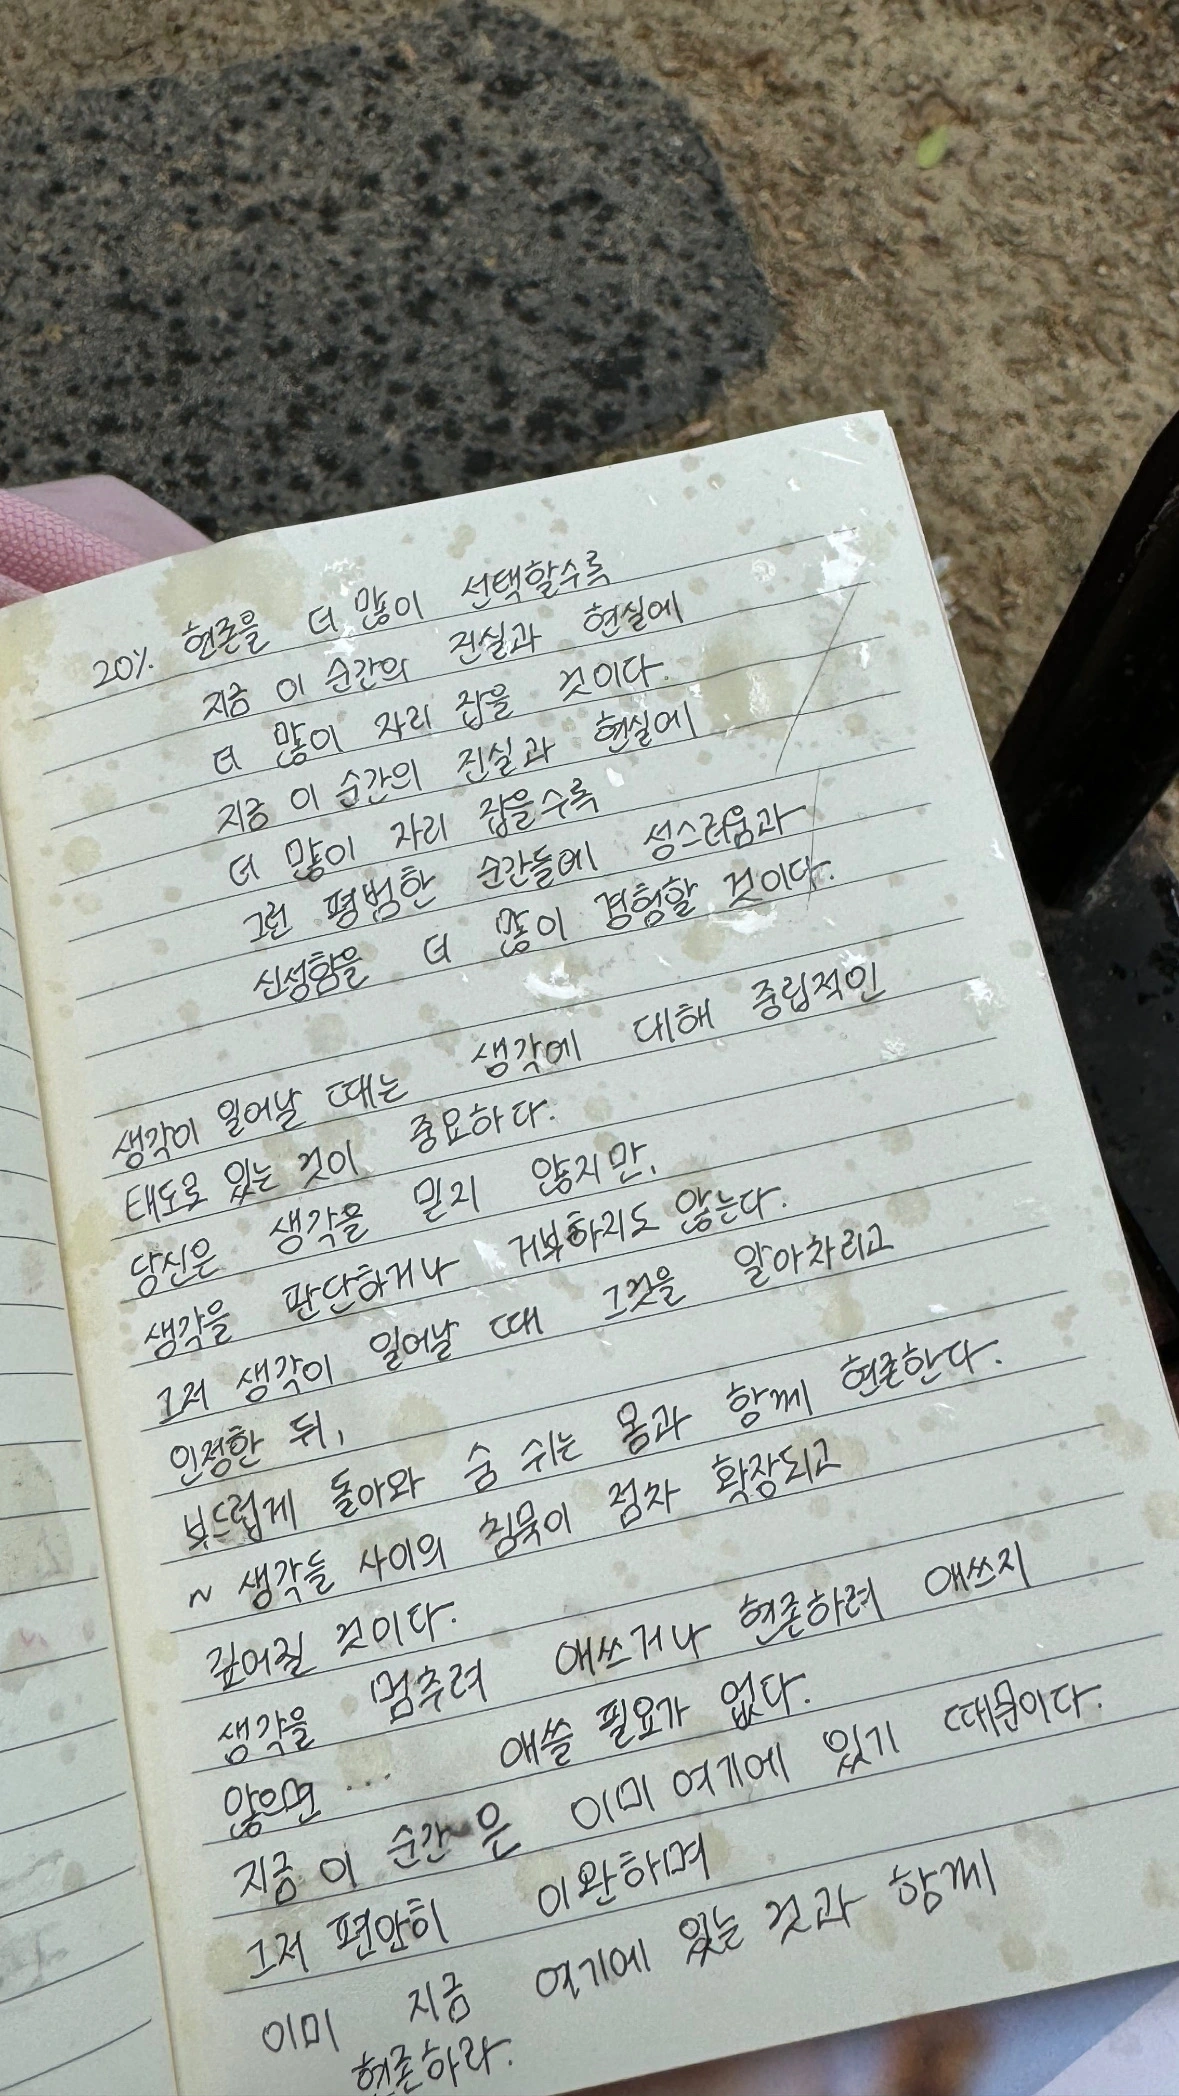 20% 현존을 더 많이 선택할수록
지금 이 순간의 진실과 현실에
더 많이 자리 잡을 것이다.
지금 이 순간의 진실과 현실에
더 많이 자리 잡을수록
그런 평범한 순간들에 성스러움과
신성함을 더 많이 경험할 것이다.
생각이 일어날 때는 생각에 대해 중립적인
태도로 있는 것이 중요하다.
당신은 생각을 믿지 않지만,
생각을 판단하거나 거부하지도 않는다.
그저 생각이 일어날 때 그것을 알아차리고
인정한 뒤,
부드럽게 돌아와 숨 쉬는 몸과 함께 현존한다.
~ 생각들 사이의 침묵이 점차 확장되고
깊어질 것이다.
생각을 멈추려 애쓰거나 현존하려 애쓰지
않으면 ... 애쓸 필요가 없다.
지금 이 순간은 이미 여기에 있기 때문이다.
그저 편안히 이완하며
이미 지금 여기에 있는 것과 함께
현존하라.